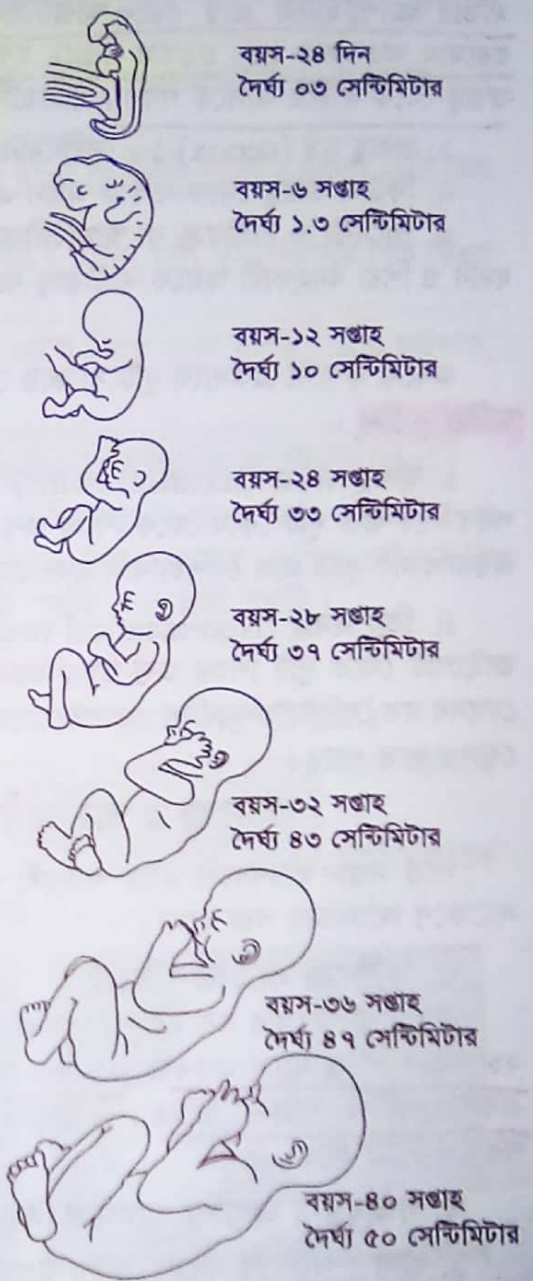 বয়স-২৪ দিন
দৈর্ঘ্য ০৩ সেন্টিমিটার
বয়স-৬ সপ্তাহ
দৈর্ঘ্য ১.৩ সেন্টিমিটার
বয়স-১২ সপ্তাহ
দৈর্ঘ্য ১০ সেন্টিমিটার
বয়স-২৪ সপ্তাহ
দৈর্ঘ্য ৩৩ সেন্টিমিটার
বয়স-২৮ সপ্তাহ
দৈর্ঘ্য ৩৭ সেন্টিমিটার
বয়স-৩২ সপ্তাহ
দৈর্ঘ্য ৪৩ সেন্টিমিটার
বয়স-৩৬ সপ্তাহ
দৈর্ঘ্য ৪৭ সেন্টিমিটার
বয়স-৪০ সপ্তাহ
দৈর্ঘ্য ৫০ সেন্টিমিটার